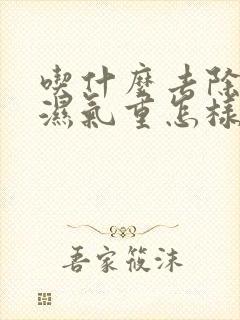 喫什麼去除
濕氣重怎樣
吾家筱沫